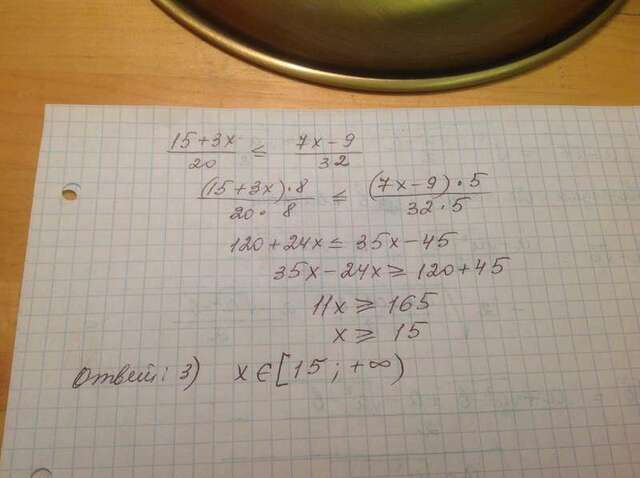 (15+3x)/20 ≤ (7x-9)/32
((15+3x)·8)/(20·8) ≤ ((7x-9)·5)/(32·5)
120+24x ≤ 35x-45
35x-24x ≥ 120+45
11x ≥ 165
x ≥ 15
Ответ: 3) x∈[15; +∞)